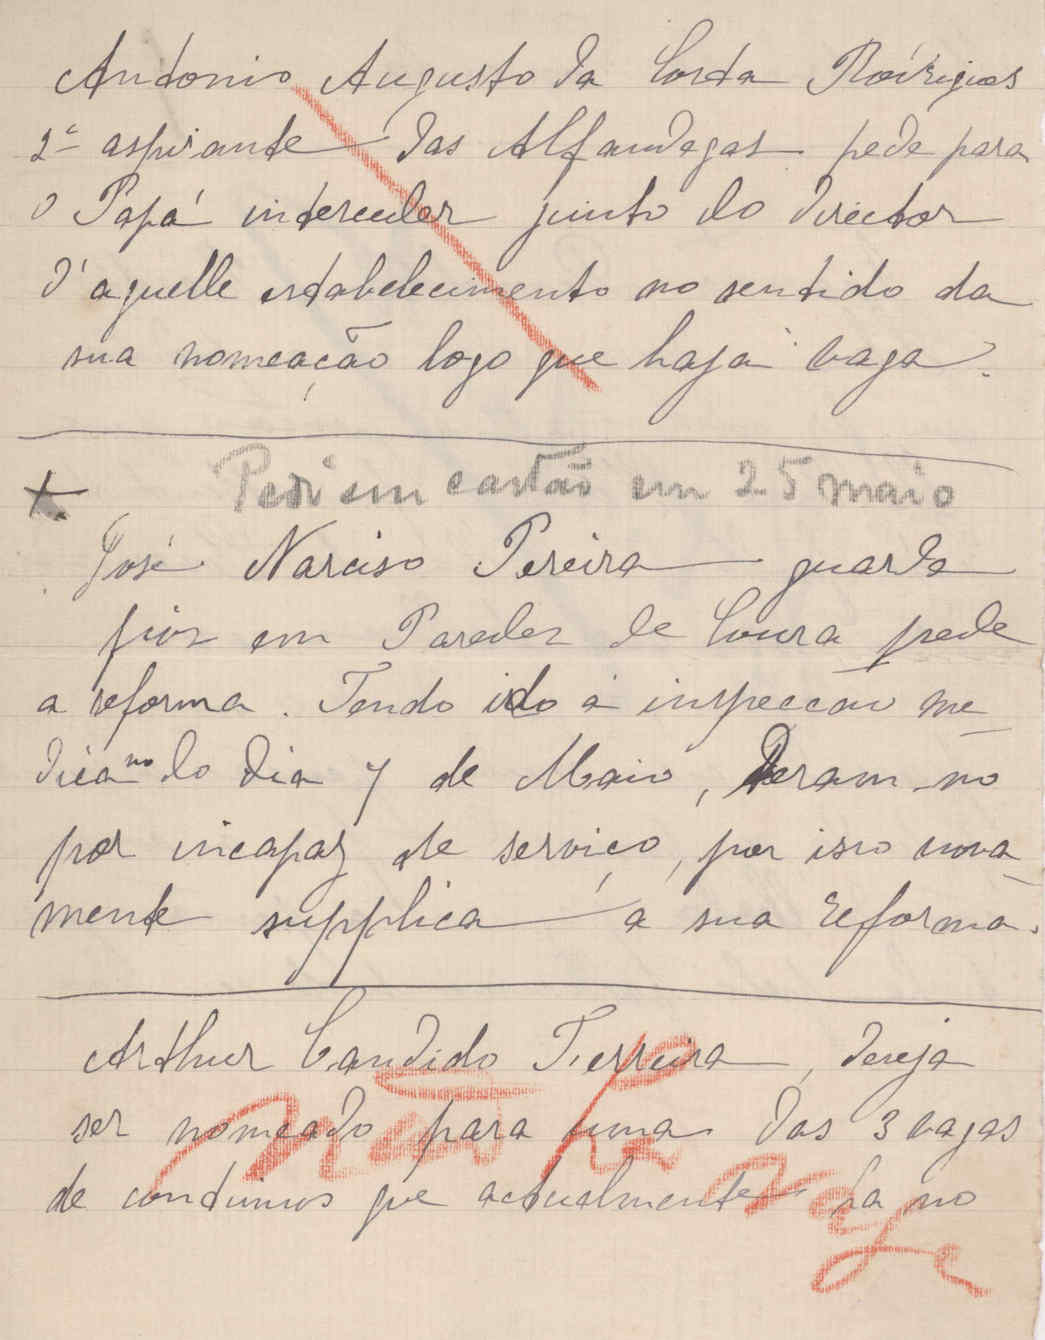 Antonio Augusto da Costa Rodrigues
2º aspirante das Alfandegas pede para
o Papá interceder junto do Director
d'aquelle estabelecimento no sentido da
sua nomeação logo que haja vaga.
Pedi em cartão em 25 maio
José Narciso Pereira guarda
fios em Paredes de Coura pede
a reforma. Tendo ido á inspeccão me
dica no do dia 7 de Maio, deram-no
por incapaz de serviço, por isso nova
mente supplica a sua reforma.
Arthur Candido Ferreira, deseja
ser nomeado para uma das 3 vagas
de continuos que actualmente ha no
Não ha vaga